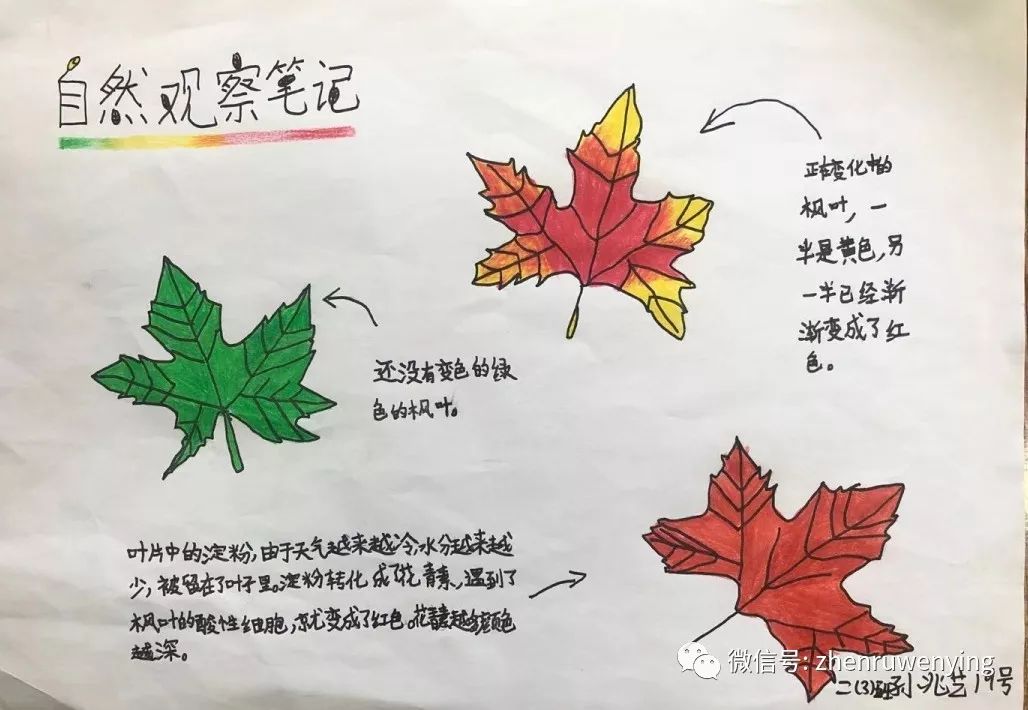 自然观察笔记
正在变化中的
枫叶，一
半是黄色，另
一半已经渐
渐变成了红
色。
还没有变色的绿
色的枫叶。
叶片中的淀粉，由于天气越来越冷，水分越来越
少，被留在了叶子里。淀粉转化成了花青素，遇到了
枫叶的酸性细胞，就变成了红色。花青素越多颜色
越深。
微信号: zhenruwenying
二(3)班 兆艺 19号